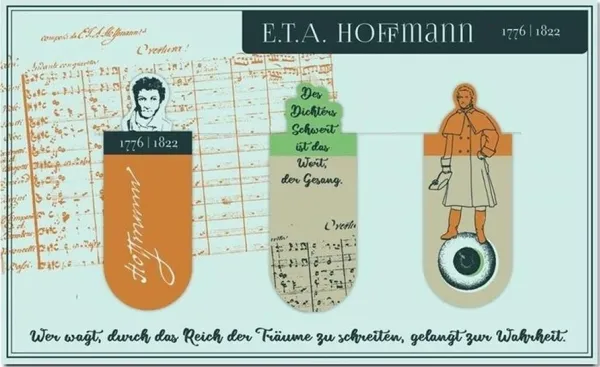 E.T.A. HOFFmann 1776 | 1822
componirt von E.T.A. Hoffmann
Overtura
Andante
1776 | 1822
Hoffmann
Des
Dichters
Schwert
ist das
Wort,
der Gesang.
Overtura
Wer wagt, durch das Reich der Träume zu schreiten, gelangt zur Wahrheit.